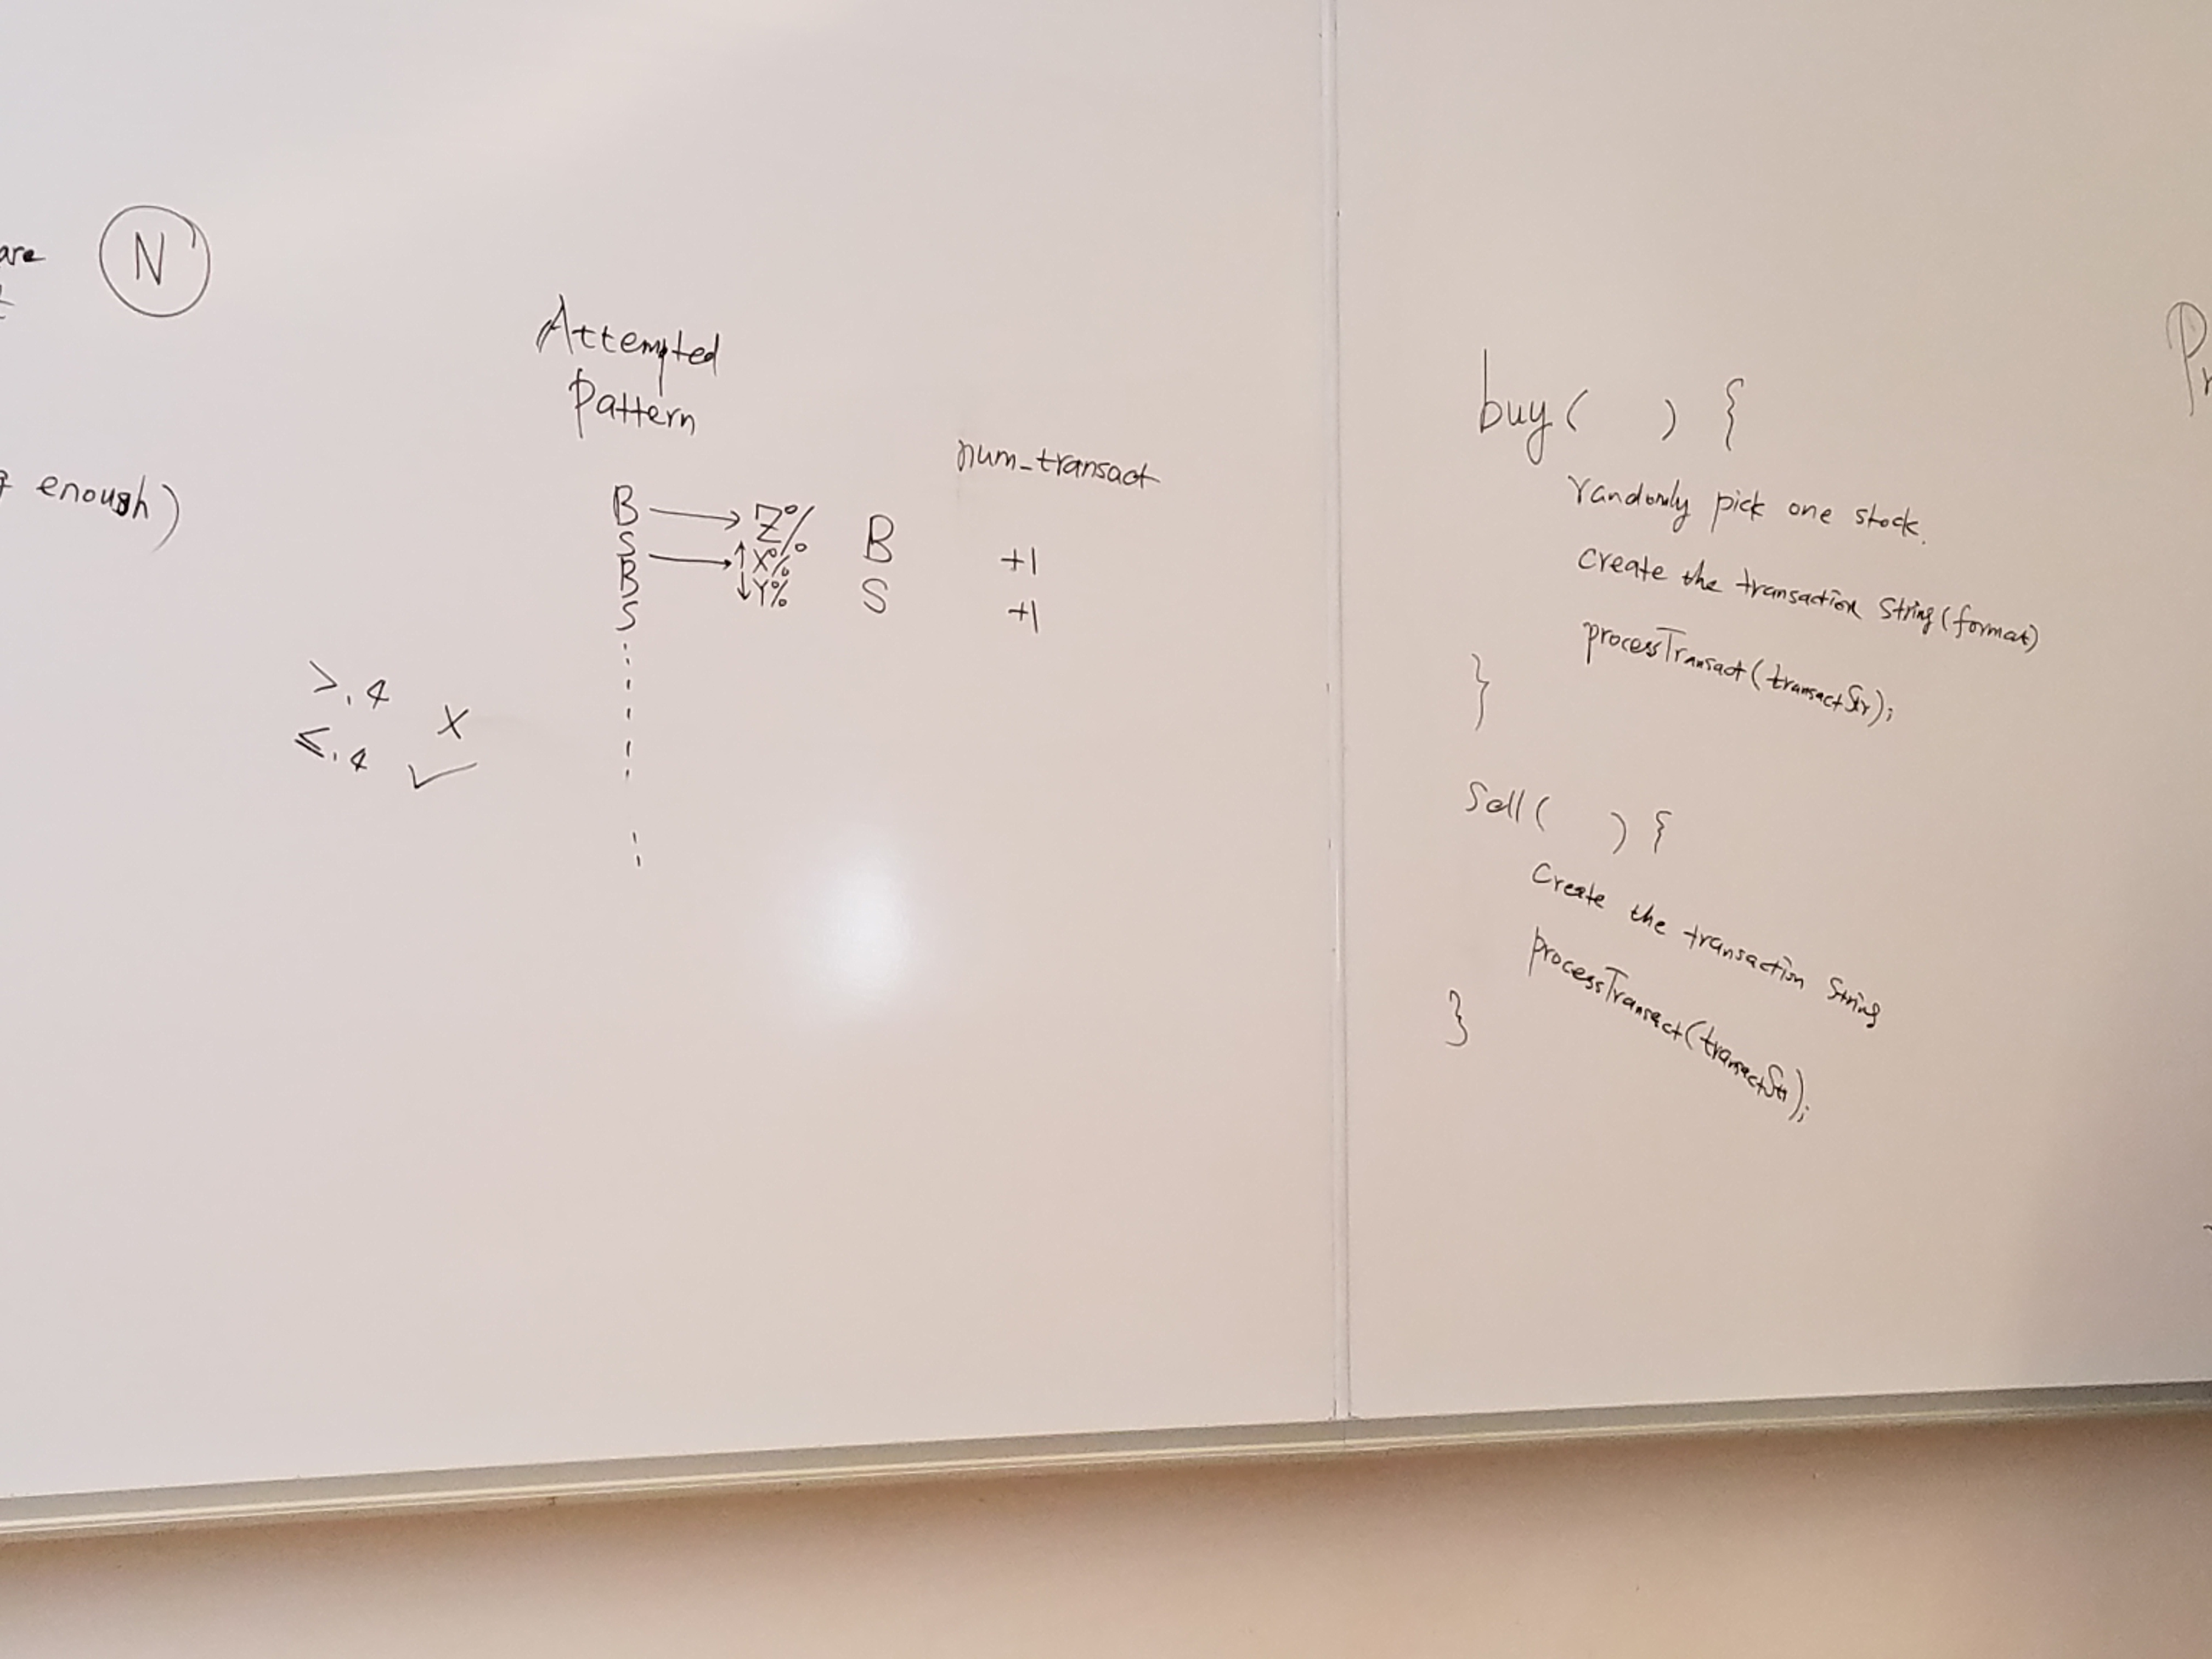 are
N
enough)
>.4 X
≤.4 ✓
Attempted
Pattern
num_transact
B → Z% B +1
S → ↑X%
B ↓Y% S +1
S
buy( ) {
randomly pick one stock.
create the transaction String (format)
processTransact(transactStr);
}
Sell( ) {
Create the transaction String
processTransact(transactStr);
}
Pr